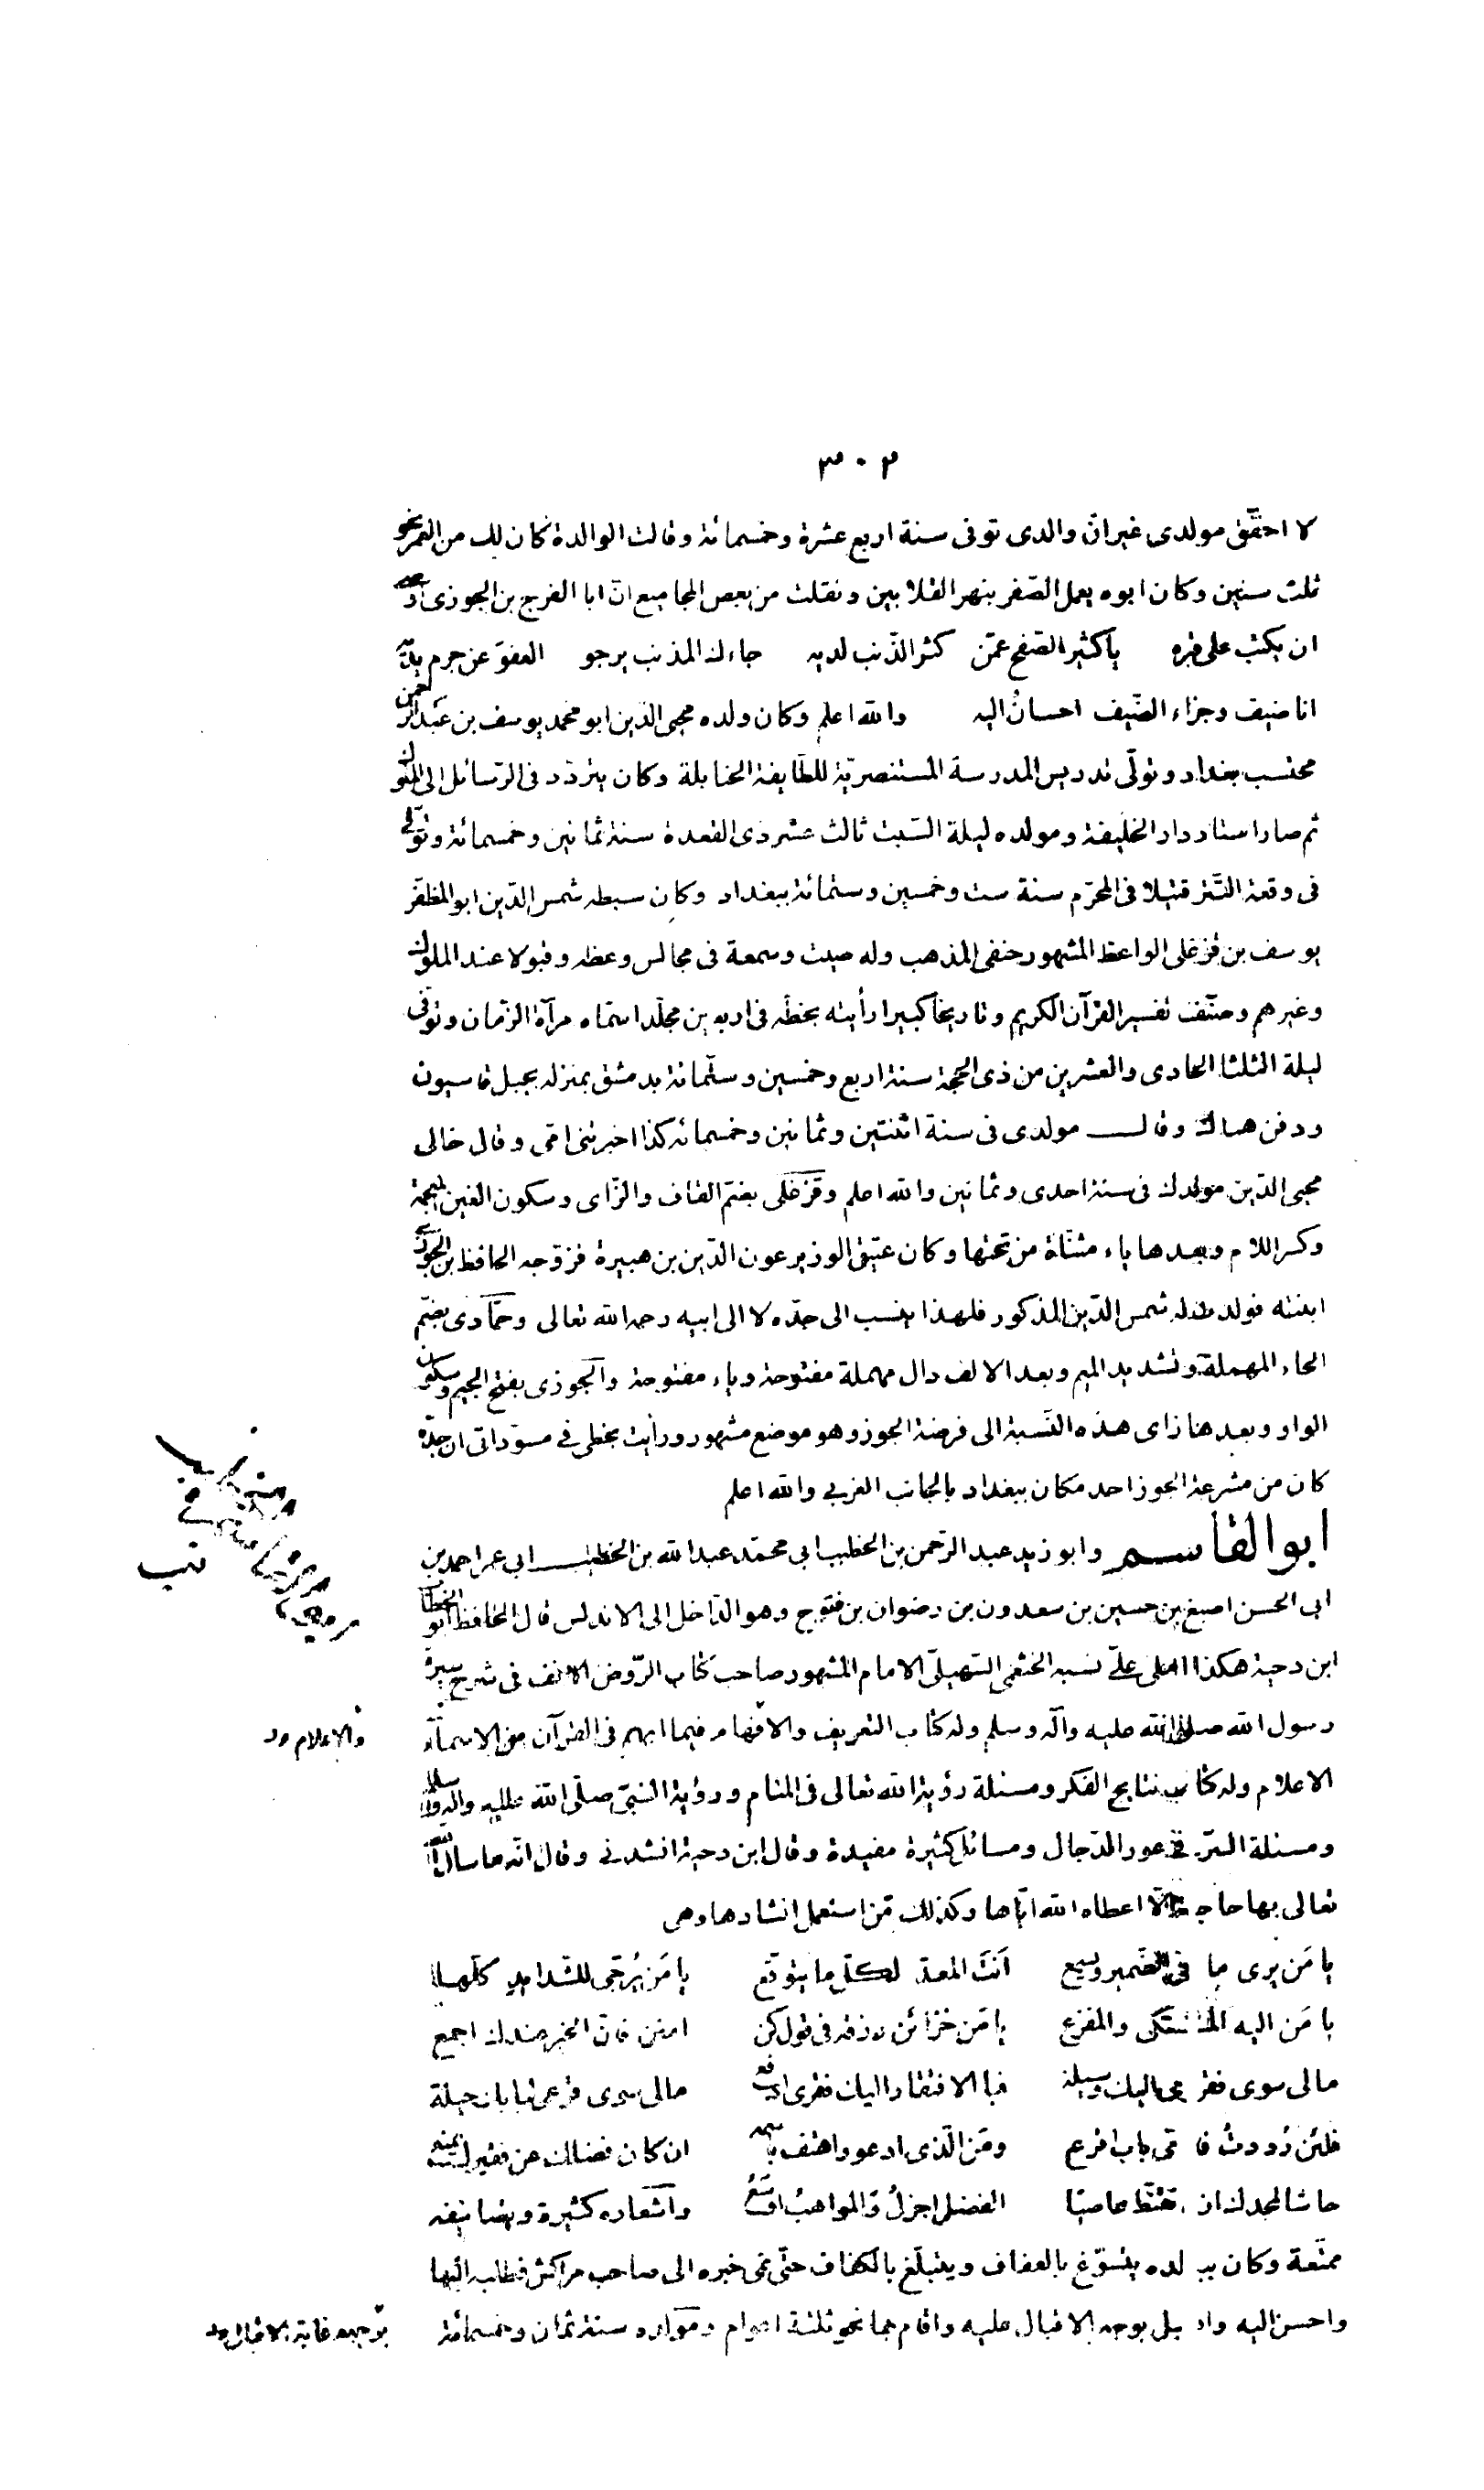 ٣٠٢
لا احقّق مولدى غيران والدى توفى سنة اربع عشرة وخمسمائة وقالت الوالدة كان لك من العمر نحو
ثلث سنين وكان ابوه يعمل الصّفر بنهر القلايين ونقلت من بعض المجاميع انّ ابا الفرج بن الجوزى اوصى
ان يكتب على قبره ياكثير الصّفح عمّن كثر الذّنب لديه جاءك المذنب يرجو العفو عن جرم يديه
انا ضيف وجزاء الضّيف احسانٌ اليه والله اعلم وكان ولده محيى الدّين ابو محمد يوسف بن عبد الرحمن
محتسب بغداد وتولّى تدريس المدرسة المستنصريّة للطّايفة الحنابلة وكان يتردّد فى الرّسائل الى الملوك
ثم صار استاد دار الخليفة ومولده ليلة السّبت ثالث عشر ذى القعدة سنة ثمانين وخمسمائة وتوفّى
فى وقعة التّتر قتيلا فى المحرّم سنة ست وخمسين وستمائة ببغداد وكان سبطه شمس الدّين ابو المظفّر
يوسف بن قزغلى الواعظ المشهور حنفى المذهب وله صيت وسمعة فى مجالس وعظه وقبولا عند الملوك
وغيرهم وصنّف تفسير القرآن الكريم وتاريخا كبيرا رأيته بخطّه فى اربعين مجلّدا سمّاه مرآة الزّمان وتوفّى
ليلة الثلثا الحادى والعشرين من ذى الحجة سنة اربع وخمسين وستّمائة بدمشق بمنزله بجبل قاسيون
ودفن هناك وقال مولدى فى سنة اثنتين وثمانين وخمسمائه كذا اخبرتنى امّى وقال خالى
محيى الدّين مولدك فى سنة احدى وثمانين والله اعلم وقزغلى بضمّ القاف والزّاى وسكون الغين المعجمة
وكسر اللام وبعدها ياء مثنّاة من تحتها وكان عتيق الوزير عون الدّين بن هبيرة فزوّجه الحافظ بن الجوزى
ابنته فولد له شمس الدّين المذكور فلهذا ينسب الى جدّه لا الى ابيه رحمه الله تعالى وحمّادى بضمّ
الحاء المهملة وتشديد الميم وبعد الالف دال مهملة مفتوحة وياء مفتوحة والجوزى بفتح الجيم وسكون
الواو وبعدها زاى هذه النّسبة الى فرضة الجوز وهو موضع مشهور ورأيت بخطى فى مسوّداتى ان جدّه
كان من مشرعة الجوز احد مكان ببغداد بالجانب الغربى والله اعلم
ابو القاسم وابو زيد عبد الرّحمن بن الخطيب ابى محمّد عبد الله بن الخطيب ابى عمر احمد بن
ابى الحسن اصبغ بن حسين بن سعدون بن رضوان بن فتوح وهو الدّاخل الى الاندلس قال الحافظ ابو الخطاب
ابن دحية هكذا املى علىّ نسبه الخثعمى السّهيلى الامام المشهور صاحب كتاب الرّوض الانف فى شرح سيرة
رسول الله صلى الله عليه وآله وسلم وله كتاب التعريف والافهام فيما ابهم فى القرآن من الاسماء
والاعلام
الاعلام وله كتاب نتايج الفكر ومسئلة رؤية الله تعالى فى المنام ورؤية النبىّ صلّى الله عليه وآله وسلم
ومسئلة السّر فى عور الدّجال ومسائل كثيرة مفيدة وقال ابن دحية انشدنى وقال انّه ما سال الله
تعالى بها حاجة الّا اعطاه الله ايّاها وكذلك من استعمل انشادها وهى
يا مَن يرى ما فى الضمير ويسمع اَنتَ المعدّ لكلّ ما يتوقّع يا مَن يُرجّى للشّدايد كلّها
يا مَن اليه المشتكى والمفزع يا مَن خزائن رزقه فى قول كن امنن فانّ الخير عندك اجمع
مالى سوى فقرى اليك وسيلة فبالافتقار اليك فقرى ادفع مالى سوى قرعى لبابك حيلة
فلئن رُددتُ فاىّ باب اقرع ومَن الّذى ادعو واهتف باسمه ان كان فضلك عن فقيرك يمنع
حاشا لمجدك ان تقنّط عاصيًا الفضل اجزلُ والمواهبُ اوسَعُ واشعاره كثيرة وتصانيفه
ممتّعة وكان ببلده يتسوّغ بالعفاف ويتبلّغ بالكفاف حتّى نمى خبره الى صاحب مراكش فطلب اليها
واحسن اليه واقبل بوجه الاقبال عليه واقام بها نحو ثلثة اعوام ومولده سنة ثمان وخمسمائة